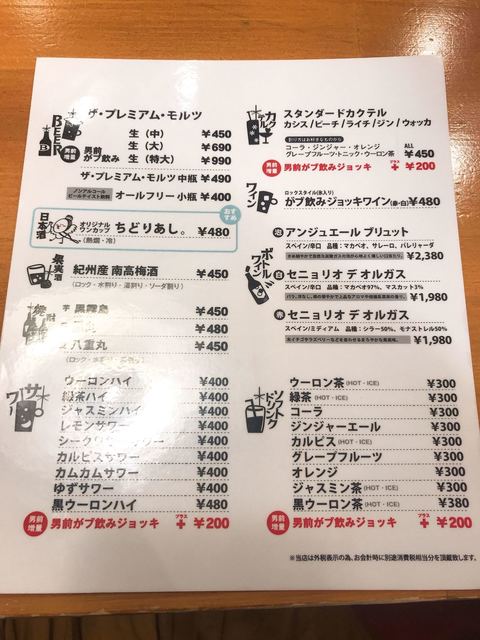 BEER
ザ・プレミアム・モルツ
生(中) ¥450
生(大) ¥690
男前増量
男前がブ飲み 生(特大) ¥990
ザ・プレミアム・モルツ 中瓶 ¥490
ノンアルコールビールテイスト飲料
オールフリー 小瓶 ¥400
おすすめ
日本酒
オリジナルワンカップ ちどりあし。 ¥480
(熱燗・冷)
果実酒
紀州産 南高梅酒 ¥450
(ロック・水割り・湯割り・ソーダ割り)
黒霧島 ¥450
¥480
八重丸 ¥450
サワー
ウーロンハイ ¥400
緑茶ハイ ¥400
ジャスミンハイ ¥400
レモンサワー ¥400
シークワーサーサワー ¥400
カルピスサワー ¥400
カムカムサワー ¥400
ゆずサワー ¥400
黒ウーロンハイ ¥480
男前増量
男前がブ飲みジョッキ プラス + ¥200
カクテル
スタンダードカクテル
カシス/ピーチ/ライチ/ジン/ウォッカ
コーラ・ジンジャー・オレンジ
グレープフルーツ・トニック・ウーロン茶
ALL ¥450
男前増量
男前がブ飲みジョッキ プラス + ¥200
ワイン
ロックスタイル(氷入り)
がブ飲みジョッキワイン(赤・白) ¥480
ボトルワイン
泡 アンジュエール ブリュット
スペイン/辛口 品種:マカベオ、サレーロ、パレリャーダ
¥2,380
白 セニョリオ デ オルガス
スペイン/辛口 品種:マカベオ97%、マスカット3%
¥1,980
赤 セニョリオ デ オルガス
スペイン/ミディアム 品種:シラー50%、モナストレル50%
¥1,980
ソフトドリンク
ウーロン茶(HOT・ICE) ¥300
緑茶(HOT・ICE) ¥300
コーラ ¥300
ジンジャーエール ¥300
カルピス(HOT・ICE) ¥300
グレープフルーツ ¥300
オレンジ ¥300
ジャスミン茶(HOT・ICE) ¥300
黒ウーロン茶(HOT・ICE) ¥380
男前増量
男前がブ飲みジョッキ プラス + ¥200
※当店は外税表示の為、お会計時に別途消費税相当分を頂戴致します。